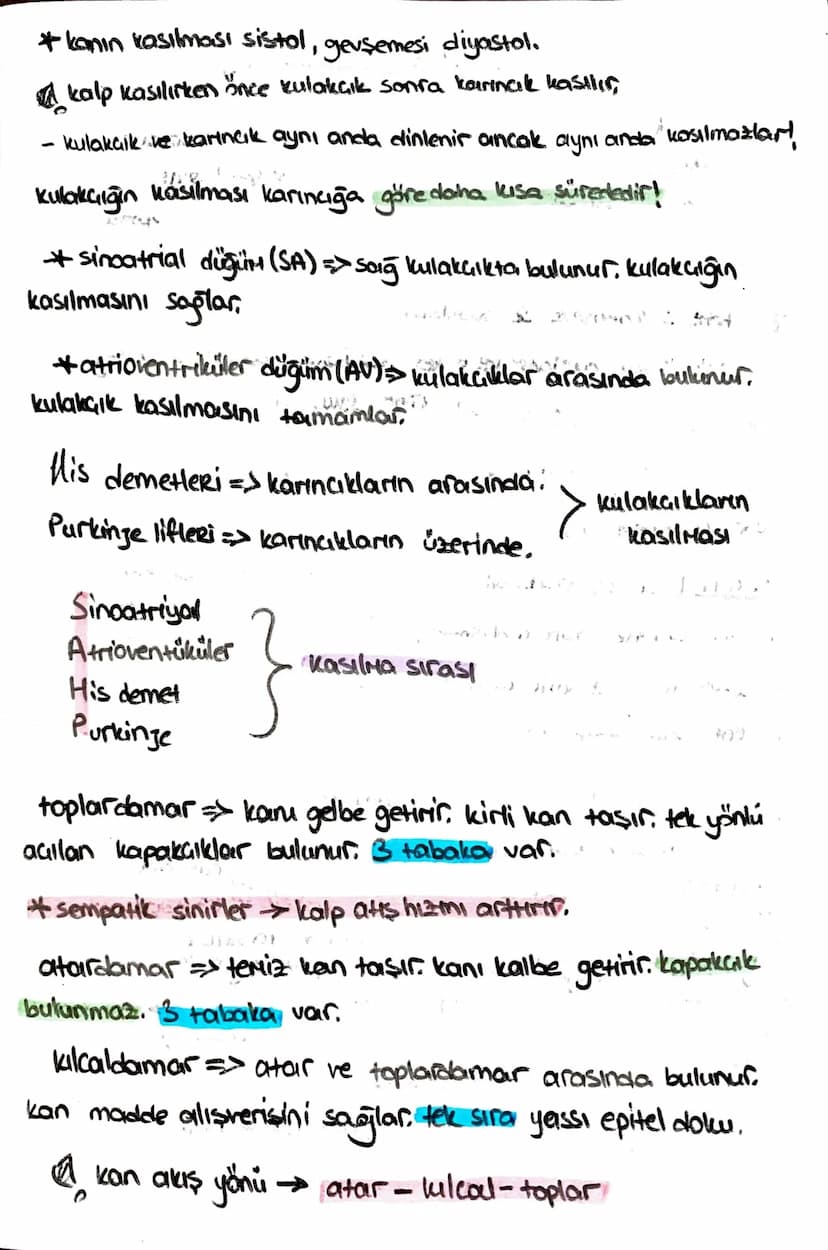 * kanın kasılması sistol, gevşemesi diyastol.
kalp kasılırken önce kulakcık sonra karıncık kasılır,
- kulakcık ve karıncık aynı anda dinlenir ancak aynı anda kasılmazlar!
kulakcığın kasılması karıncığa göre daha kısa sürededir!
* sinoatrial düğüm (SA) => sağ kulakcıkta bulunur. kulakcığın
kasılmasını sağlar.
* atrioventriküler düğüm (AV) => kulakcıklar arasında bulunur.
kulakçık kasılmasını tamamlar.
His demetleri => karıncıkların arasında.
Purkinje lifleri => karıncıkların üzerinde.
> kulakcıkların
kasılması
Sinoatriyal
Atrioventüküler
His demet
Purkinje
} kasılma sırası
toplardamar => kanı gelbe getirir. kirli kan taşır. tek yönlü
acılan kapakcıklar bulunur. 3 tabaka var.
* sempatik sinirler -> kalp atış hızını arttırır.
atardamar => temiz kan taşır. kanı kalbe getirir. kapakcık
bulunmaz. 3 tabaka var.
kılcaldamar => atar ve toplardamar arasında bulunur.
kan madde alışverişini sağlar. tek sıra yassı epitel doku.
kan akış yönü -> atar - kılcal - toplar